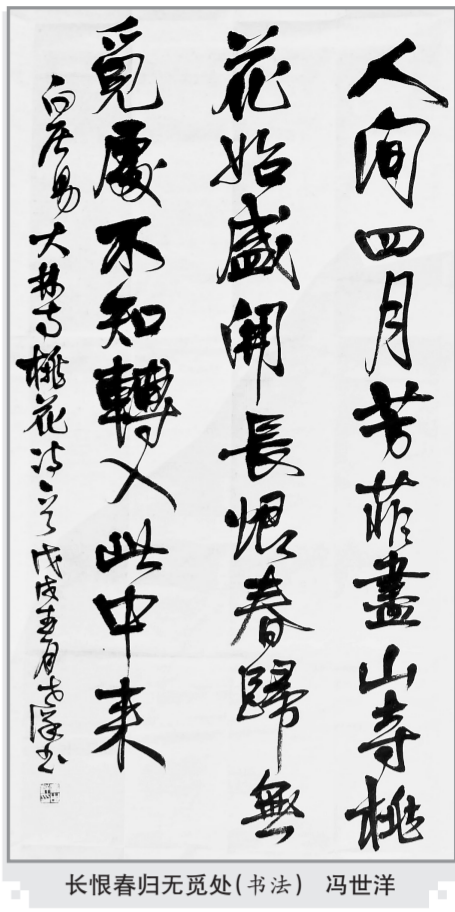 人間四月芳菲盡山寺桃
花始盛開長恨春歸無
覓處不知轉入此中来
白居易大林寺桃花诗一首戊戌春月世洋书
长恨春归无觅处(书法) 冯世洋